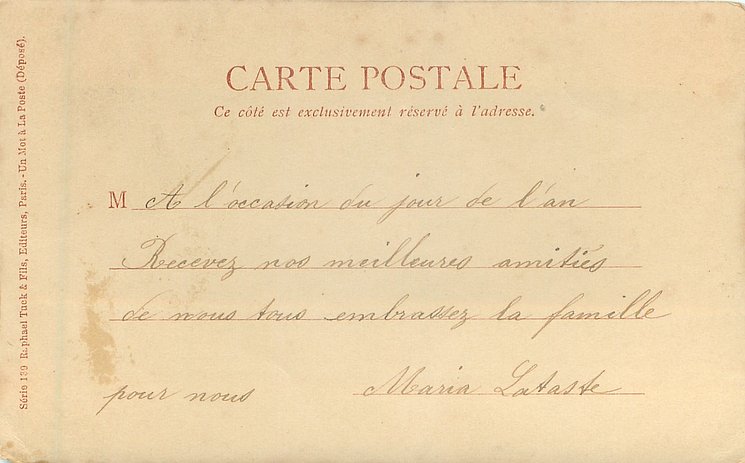 CARTE POSTALE
Ce côté est exclusivement réservé à l'adresse.
M A l'occasion du jour de l'an
Recevez nos meilleures amitiés
de nous tous embrassez la famille
pour nous Maria Lataste
Série 139 Raphael Tuck & Fils, Editeurs, Paris. - Un Mot à La Poste (Déposé).